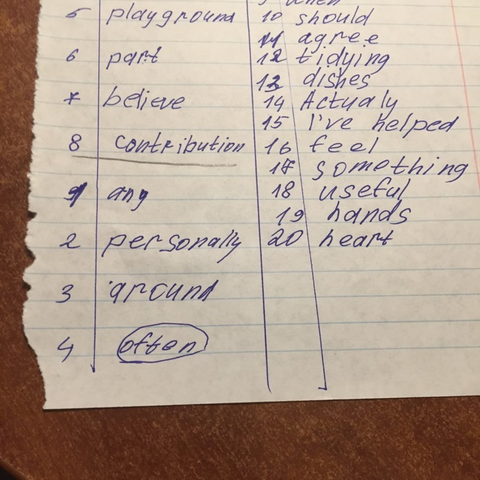 5 playground
6 part
7 believe
8 contribution
9 any
2 personally
3 around
4 often
9 when
10 should
11 agree
12 tidying
13 dishes
14 Actualy
15 I've helped
16 feel
17 something
18 useful
19 hands
20 heart